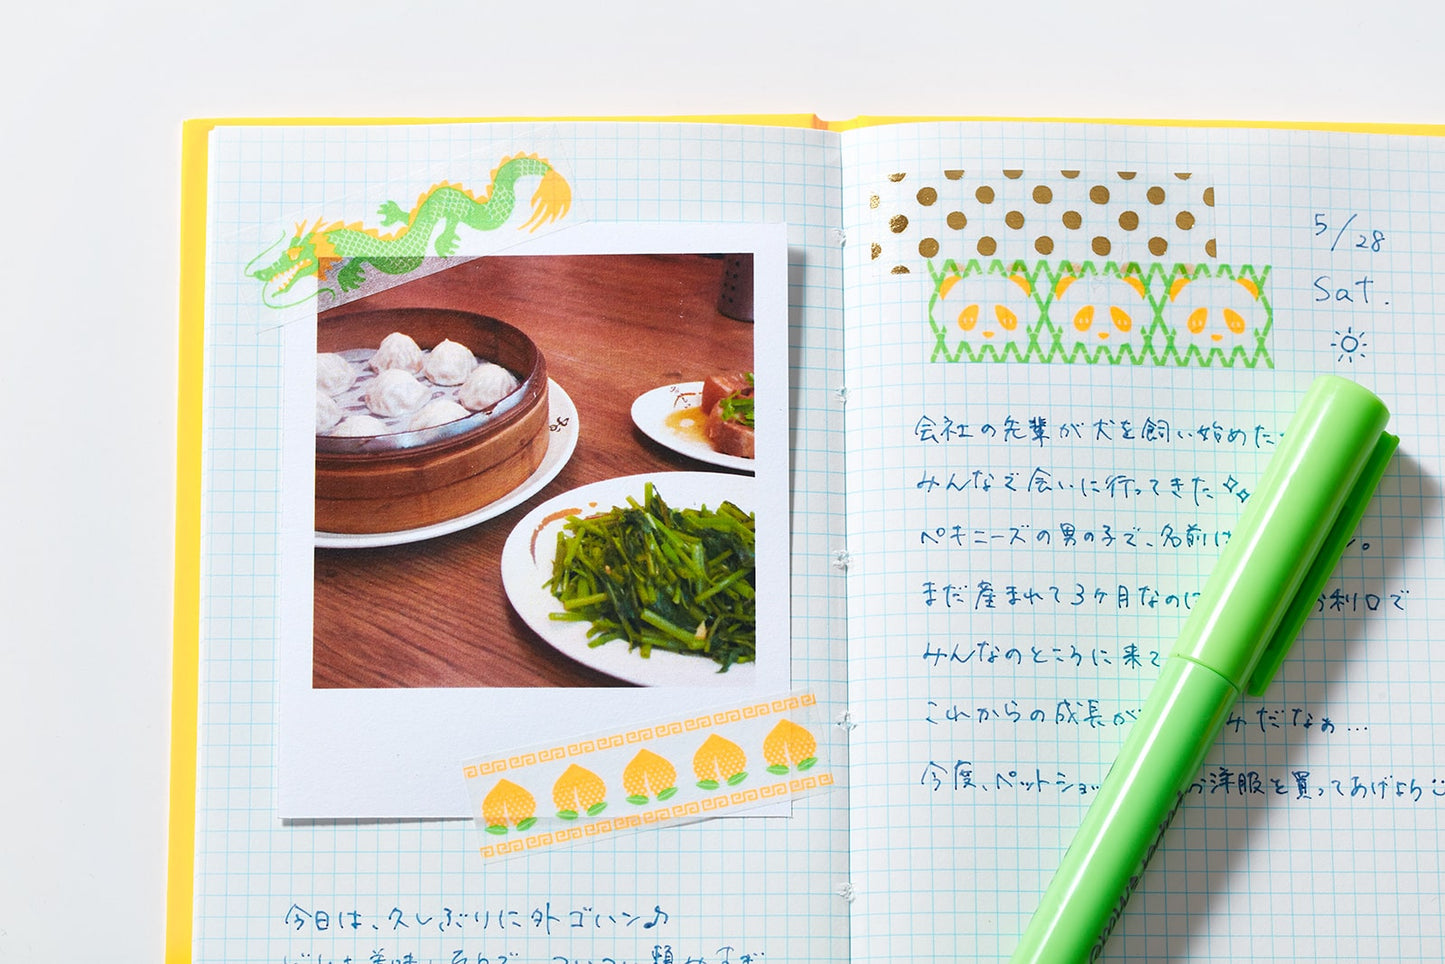 今日は、久しぶりに外ゴハン♪
5/28
Sat.
会社の先輩が犬を飼い始めた
みんなで会いに行ってきた
ペキニーズの男の子で、名前は 。
まだ産まれて3ヶ月なのに お利口で
みんなのところに来て
これからの成長が みだなぁ…
今度、ペットショ お洋服を買ってあげよう